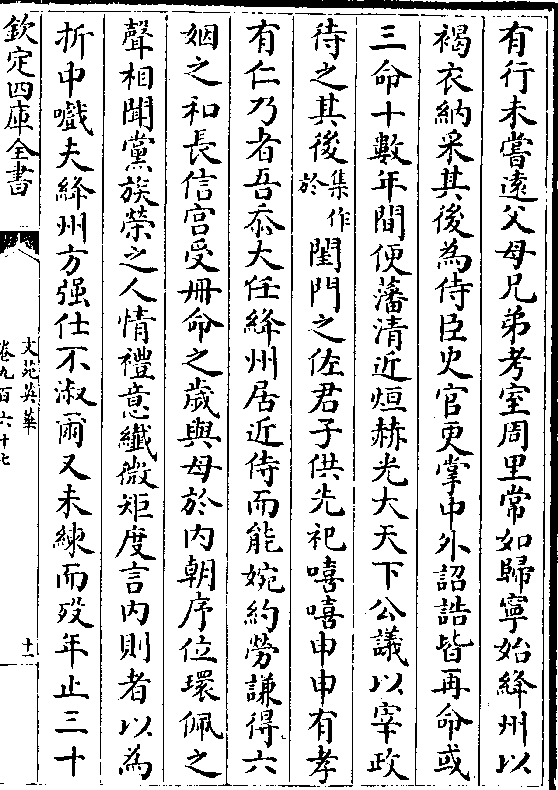 有行未嘗遠父母兄弟考室周里常如歸寧始絳州以
褐衣納采其後為侍臣史官更掌中外詔誥皆再命或
三命十數年間便藩清近烜赫光大天下公議以宰政
待之其後集作於閨門之佐君子供先祀嘻嘻申申有孝
有仁乃者吾忝大任絳州居近侍而能婉約勞謙得六
姻之和長信宮受冊命之歲與母於內朝序位環佩之
聲相聞黨族榮之人情禮意纖微矩度言內則者以為
折中戲夫絳州方强仕不淑爾又未練而歿年止三十
欽定四庫全書
文苑英華
卷九百六十七
十一